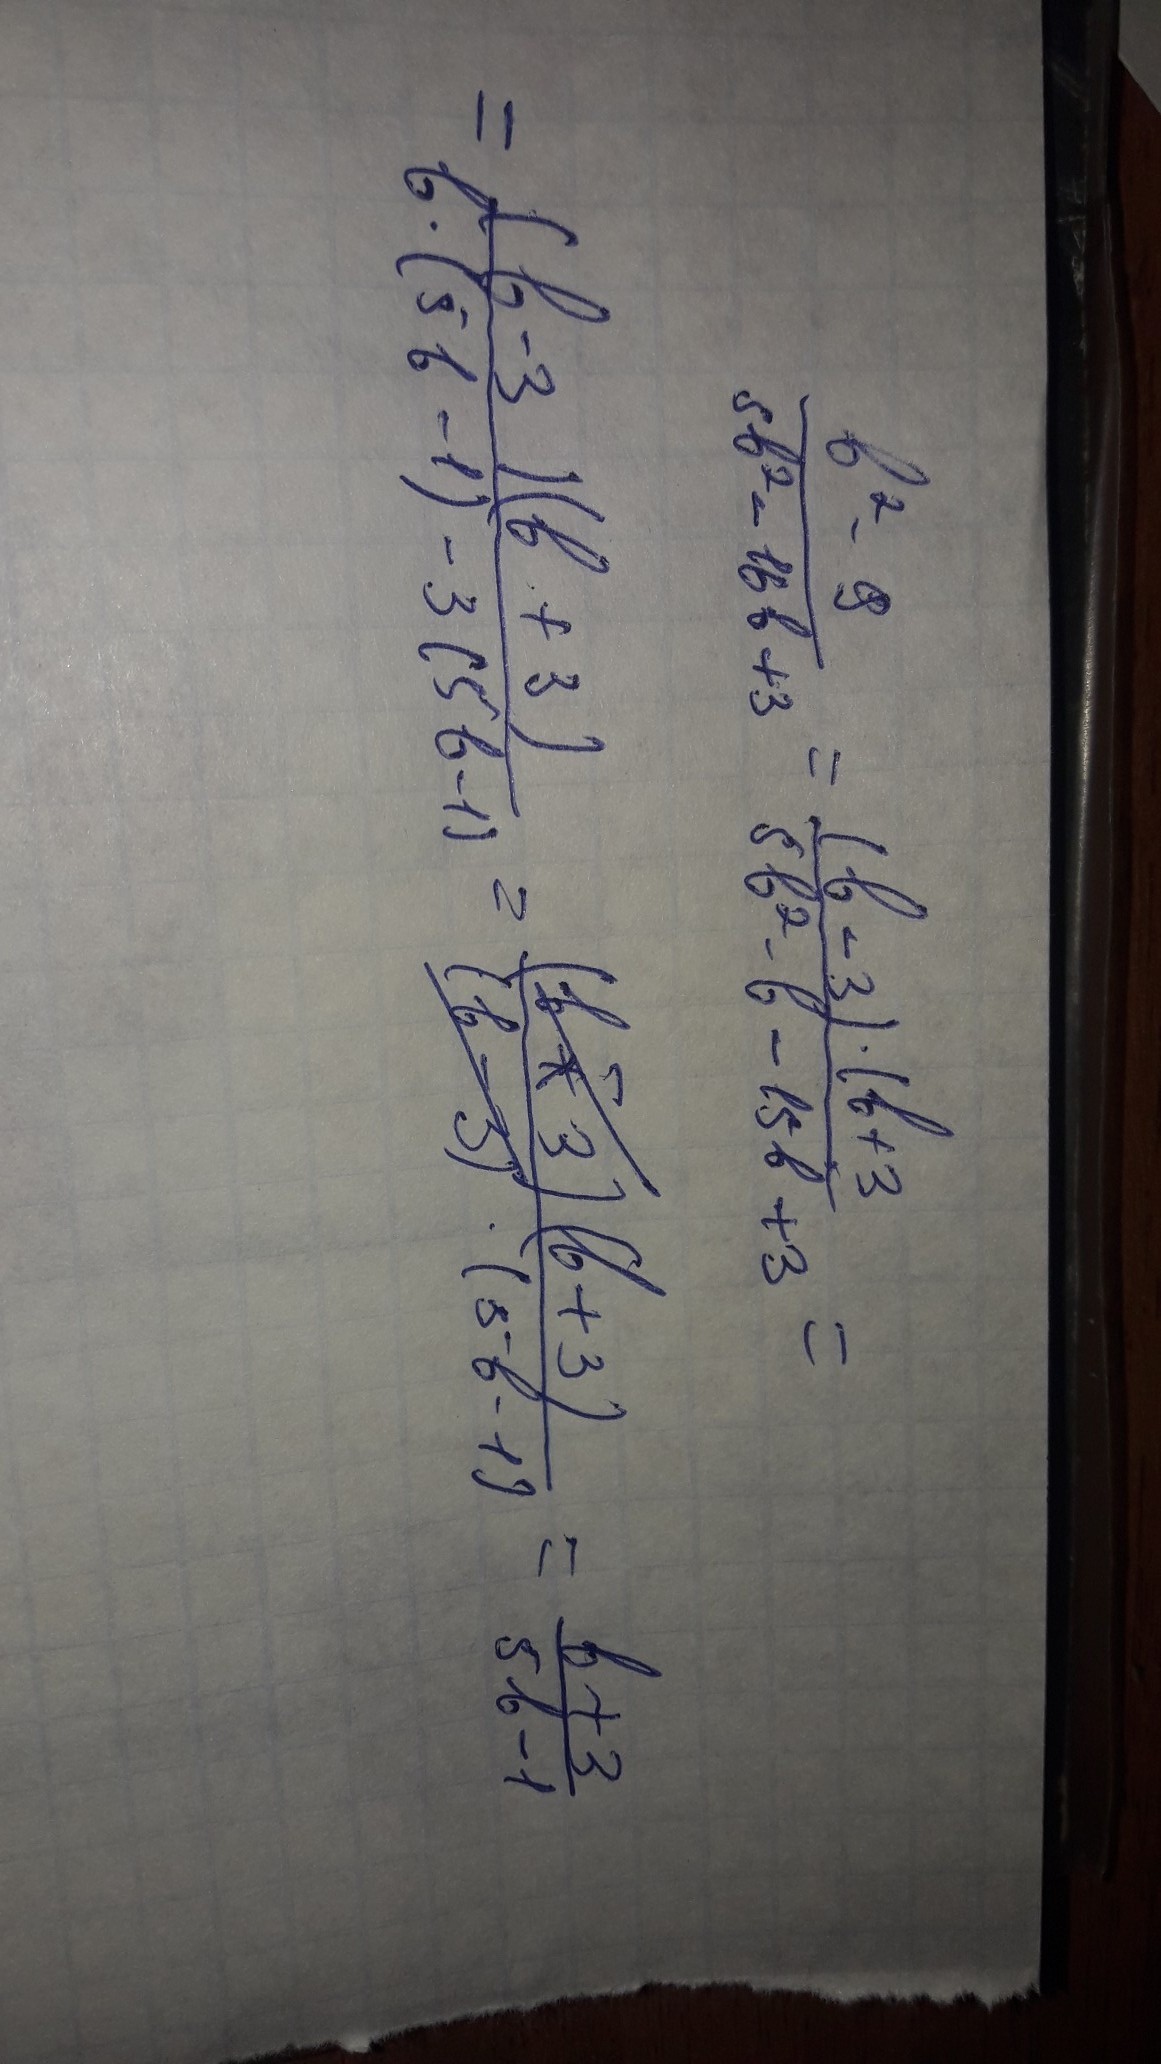 b² - 9 / 5b² - 16b + 3 = (b - 3)·(b + 3 / 5b² - b - 15b + 3 =
= (b - 3)(b + 3) / b·(5b - 1) - 3(5b - 1) = (b - 3)(b + 3) / (b - 3)·(5b - 1) = b + 3 / 5b - 1